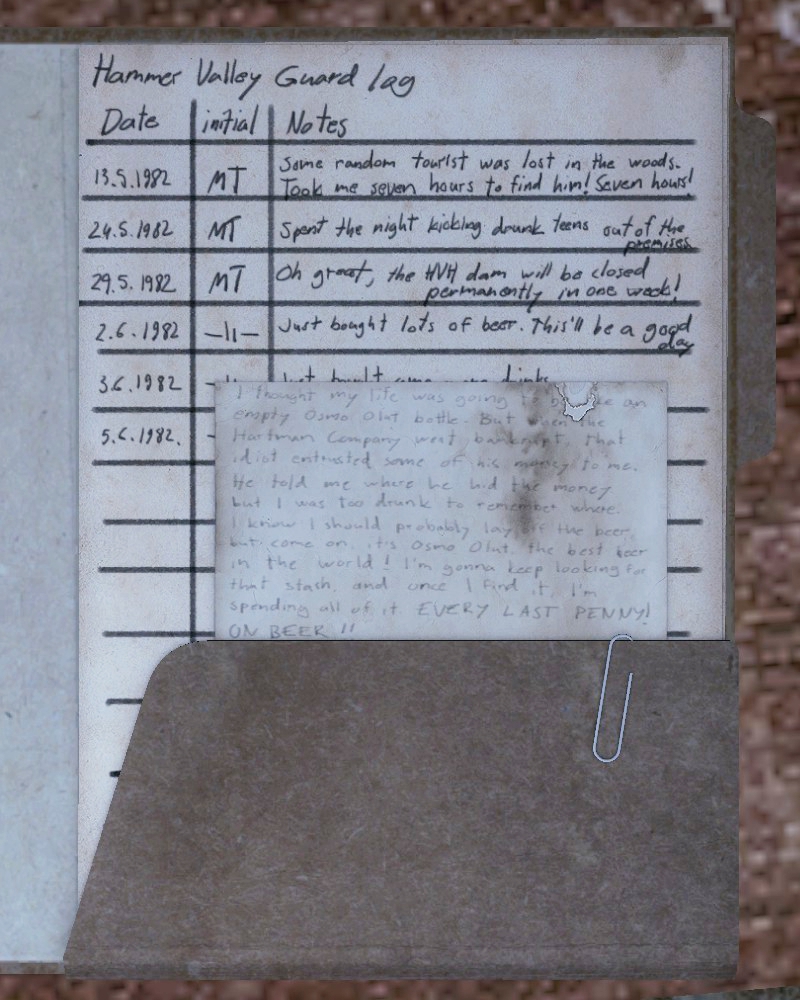 Hammer Valley Guard log
Date initial Notes
13.5.1982 MT Some random tourist was lost in the woods.
Took me seven hours to find him! Seven hours!
24.5.1982 MT Spent the night kicking drunk teens out of the
premises
29.5.1982 MT Oh great, the HVH dam will be closed
permanently in one week!
2.6.1982 —||— Just bought lots of beer. This'll be a good
day
3.6.1982 Just drinks
5.6.1982.
I thought my life was going to be an
empty Osmo Olut bottle. But when the
Hartman Company went bankrupt, that
idiot entrusted some of his money to me.
He told me where he hid the money
but I was too drunk to remember where.
I know I should probably lay off the beer,
but come on, it's Osmo Olut, the best beer
in the world! I'm gonna keep looking for
that stash, and once I find it, I'm
spending all of it EVERY LAST PENNY!
ON BEER !!